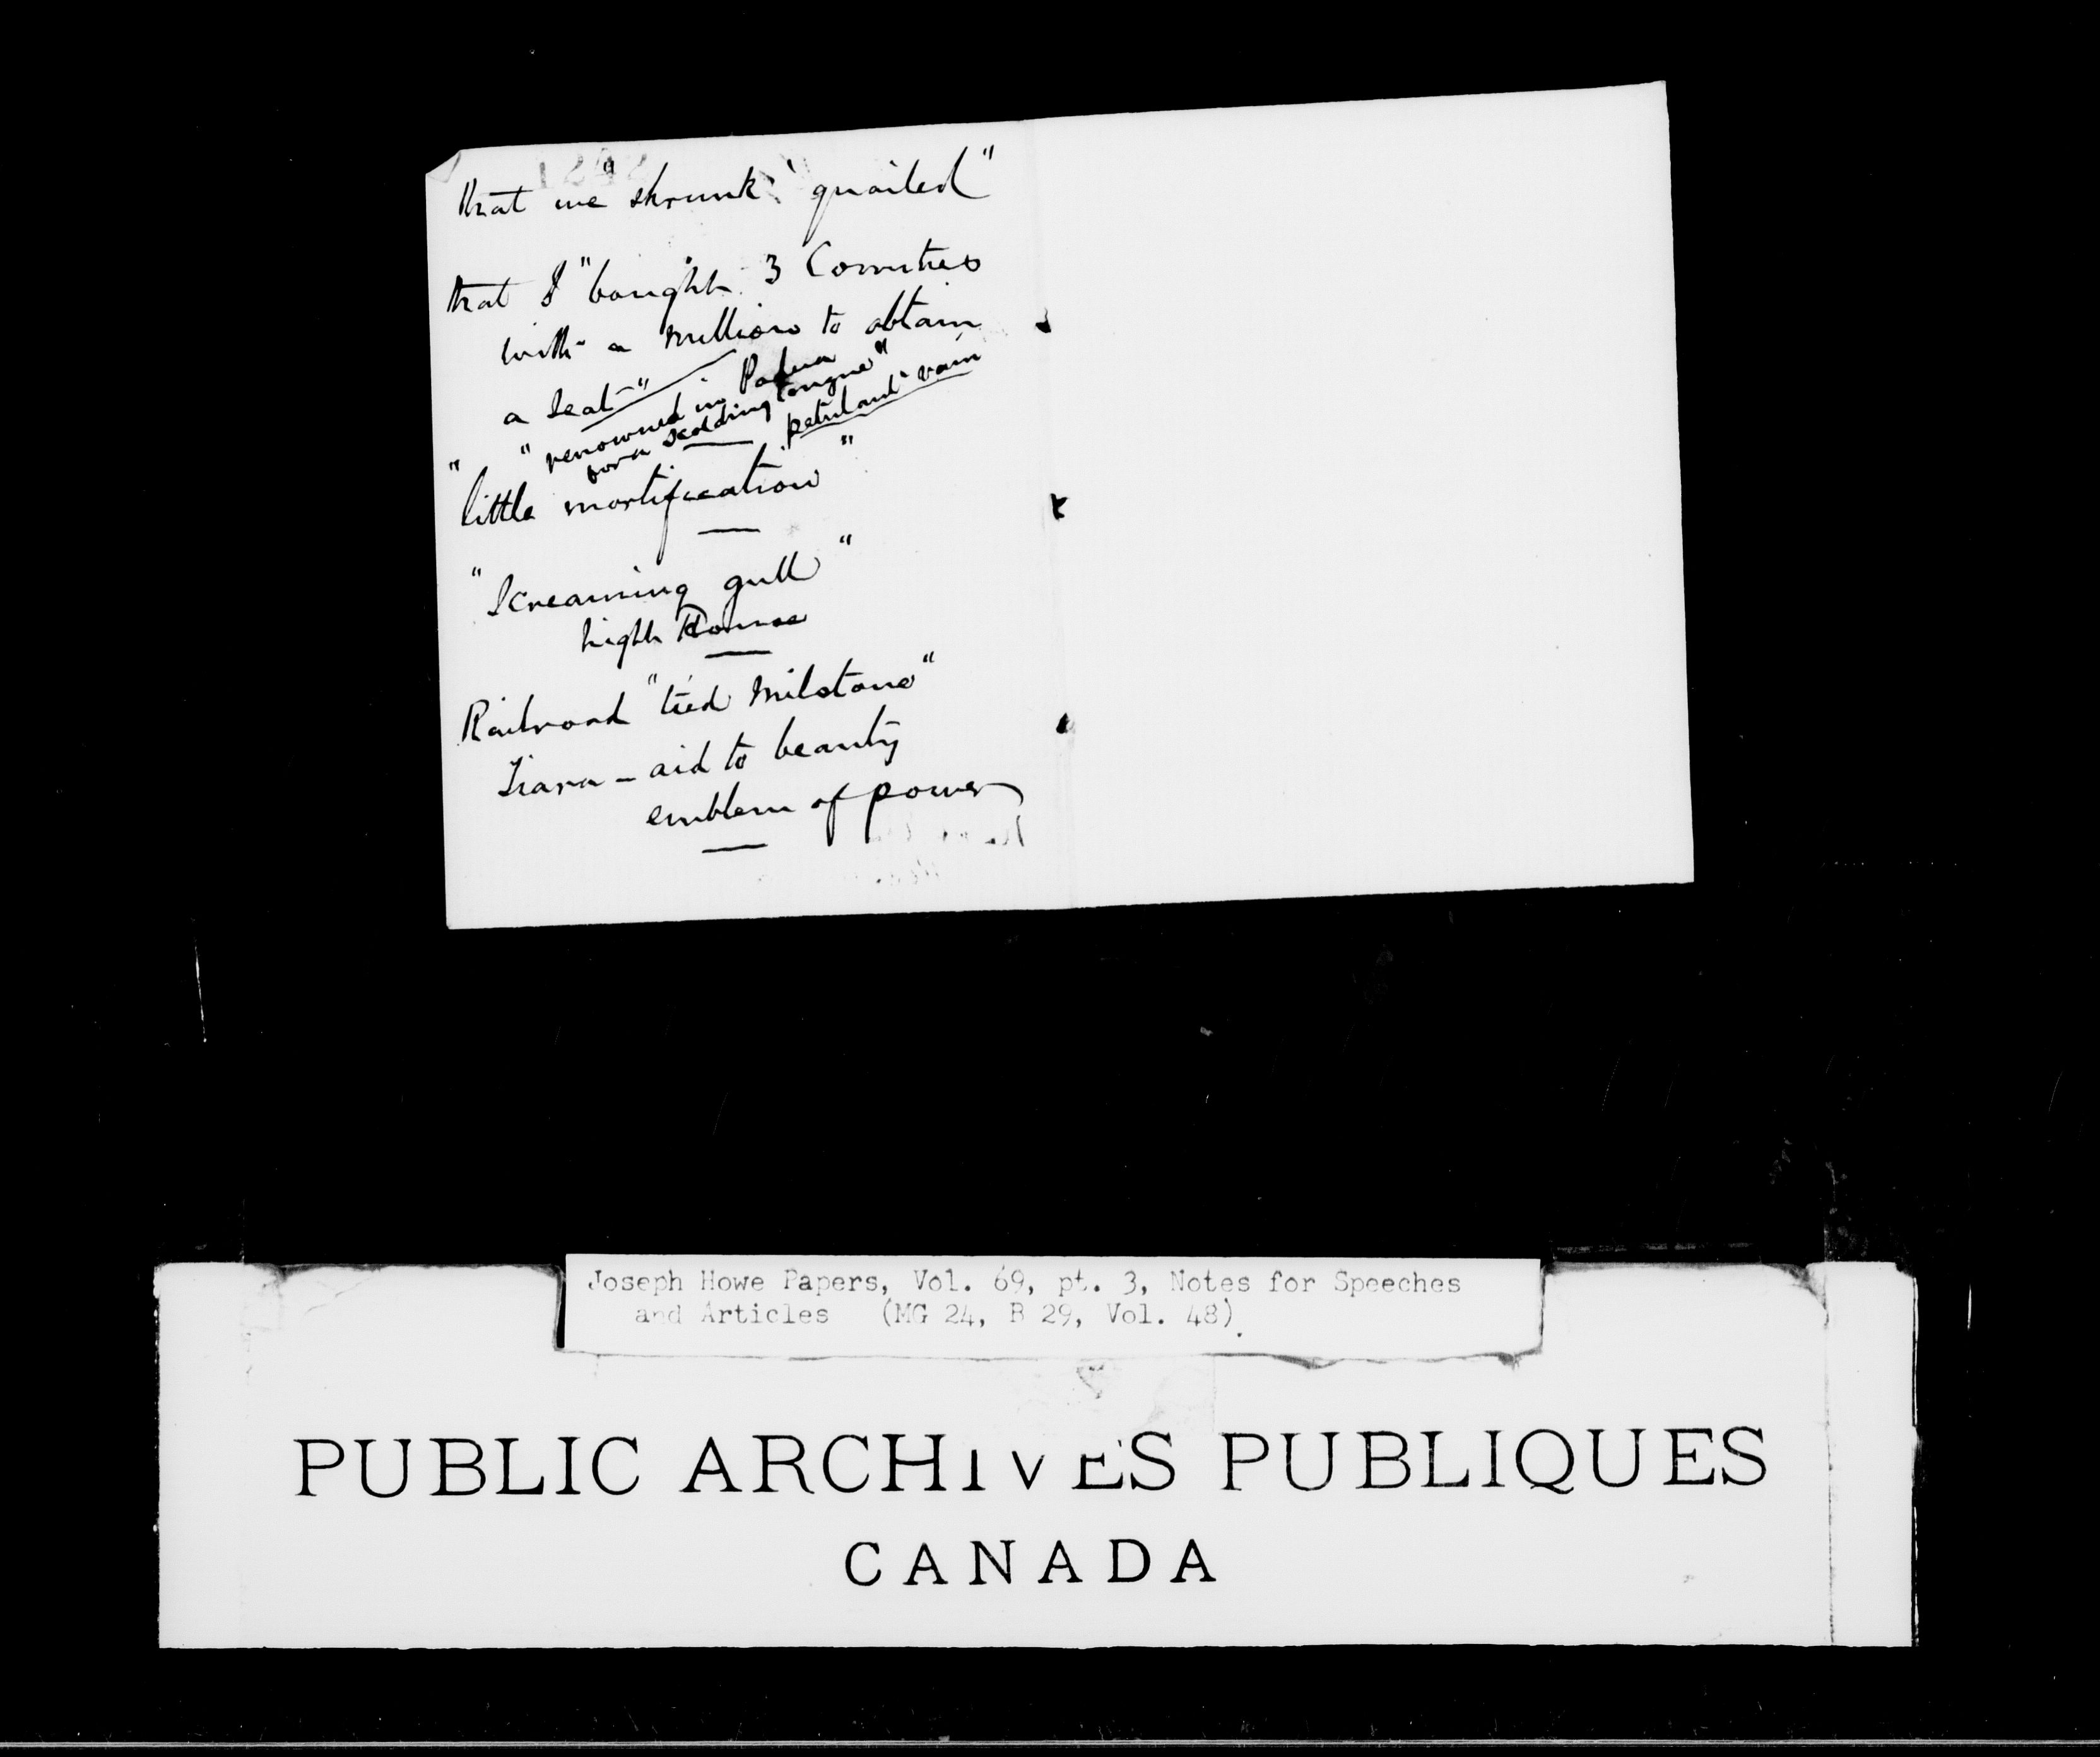 that we "shrunk" "quailed"
that I "bought 3 Counties
with a million to obtain
a seat"
"renowned in Padua
for a scolding tongue"
petulant vain
"little mortification"
"Screaming gull"
high
Railroad "tied Milstone"
Tiara - aid to beauty
emblem of power
Joseph Howe Papers, Vol. 69, pt. 3, Notes for Speeches
and Articles (MG 24, B 29, Vol. 48).
PUBLIC ARCHIVES PUBLIQUES
CANADA